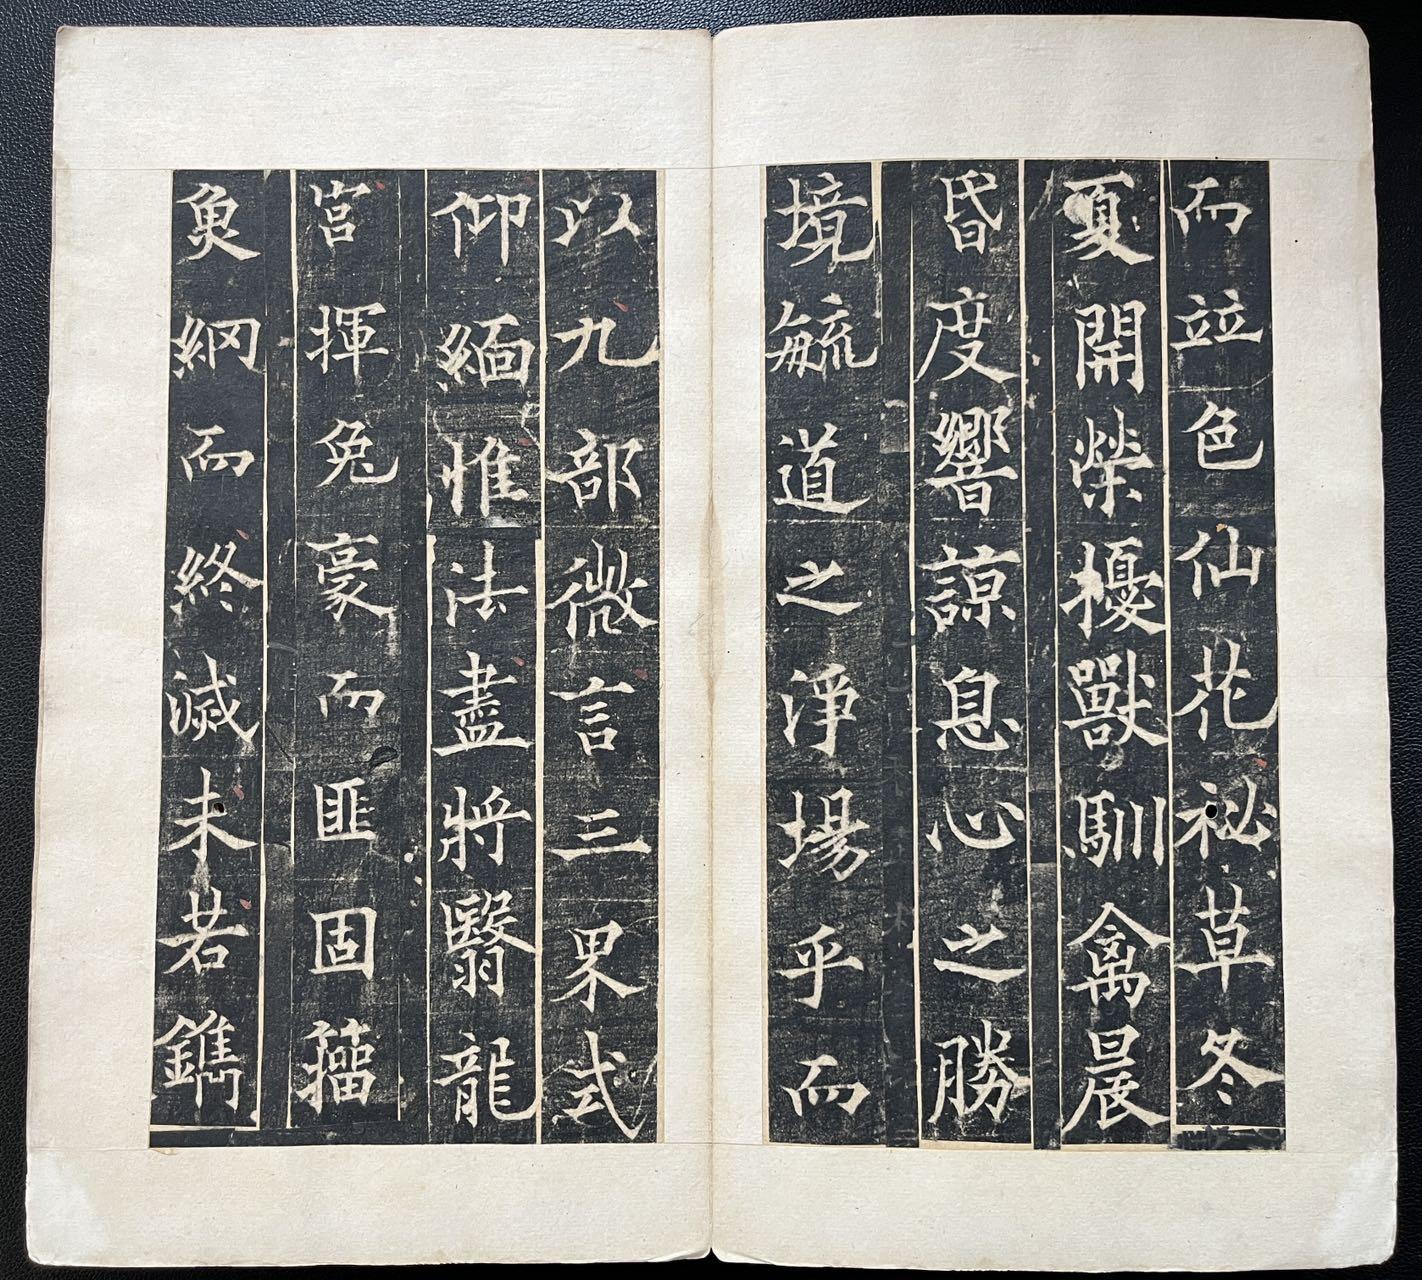 而竝色仙花祕草冬
夏開榮擾獸馴禽晨
昏度響諒息心之勝
境毓道之淨場乎而
以九部微言三界式
仰緬惟法盡將翳龍
宮揮兔豪而匪固籀
魚網而終滅未若鐫